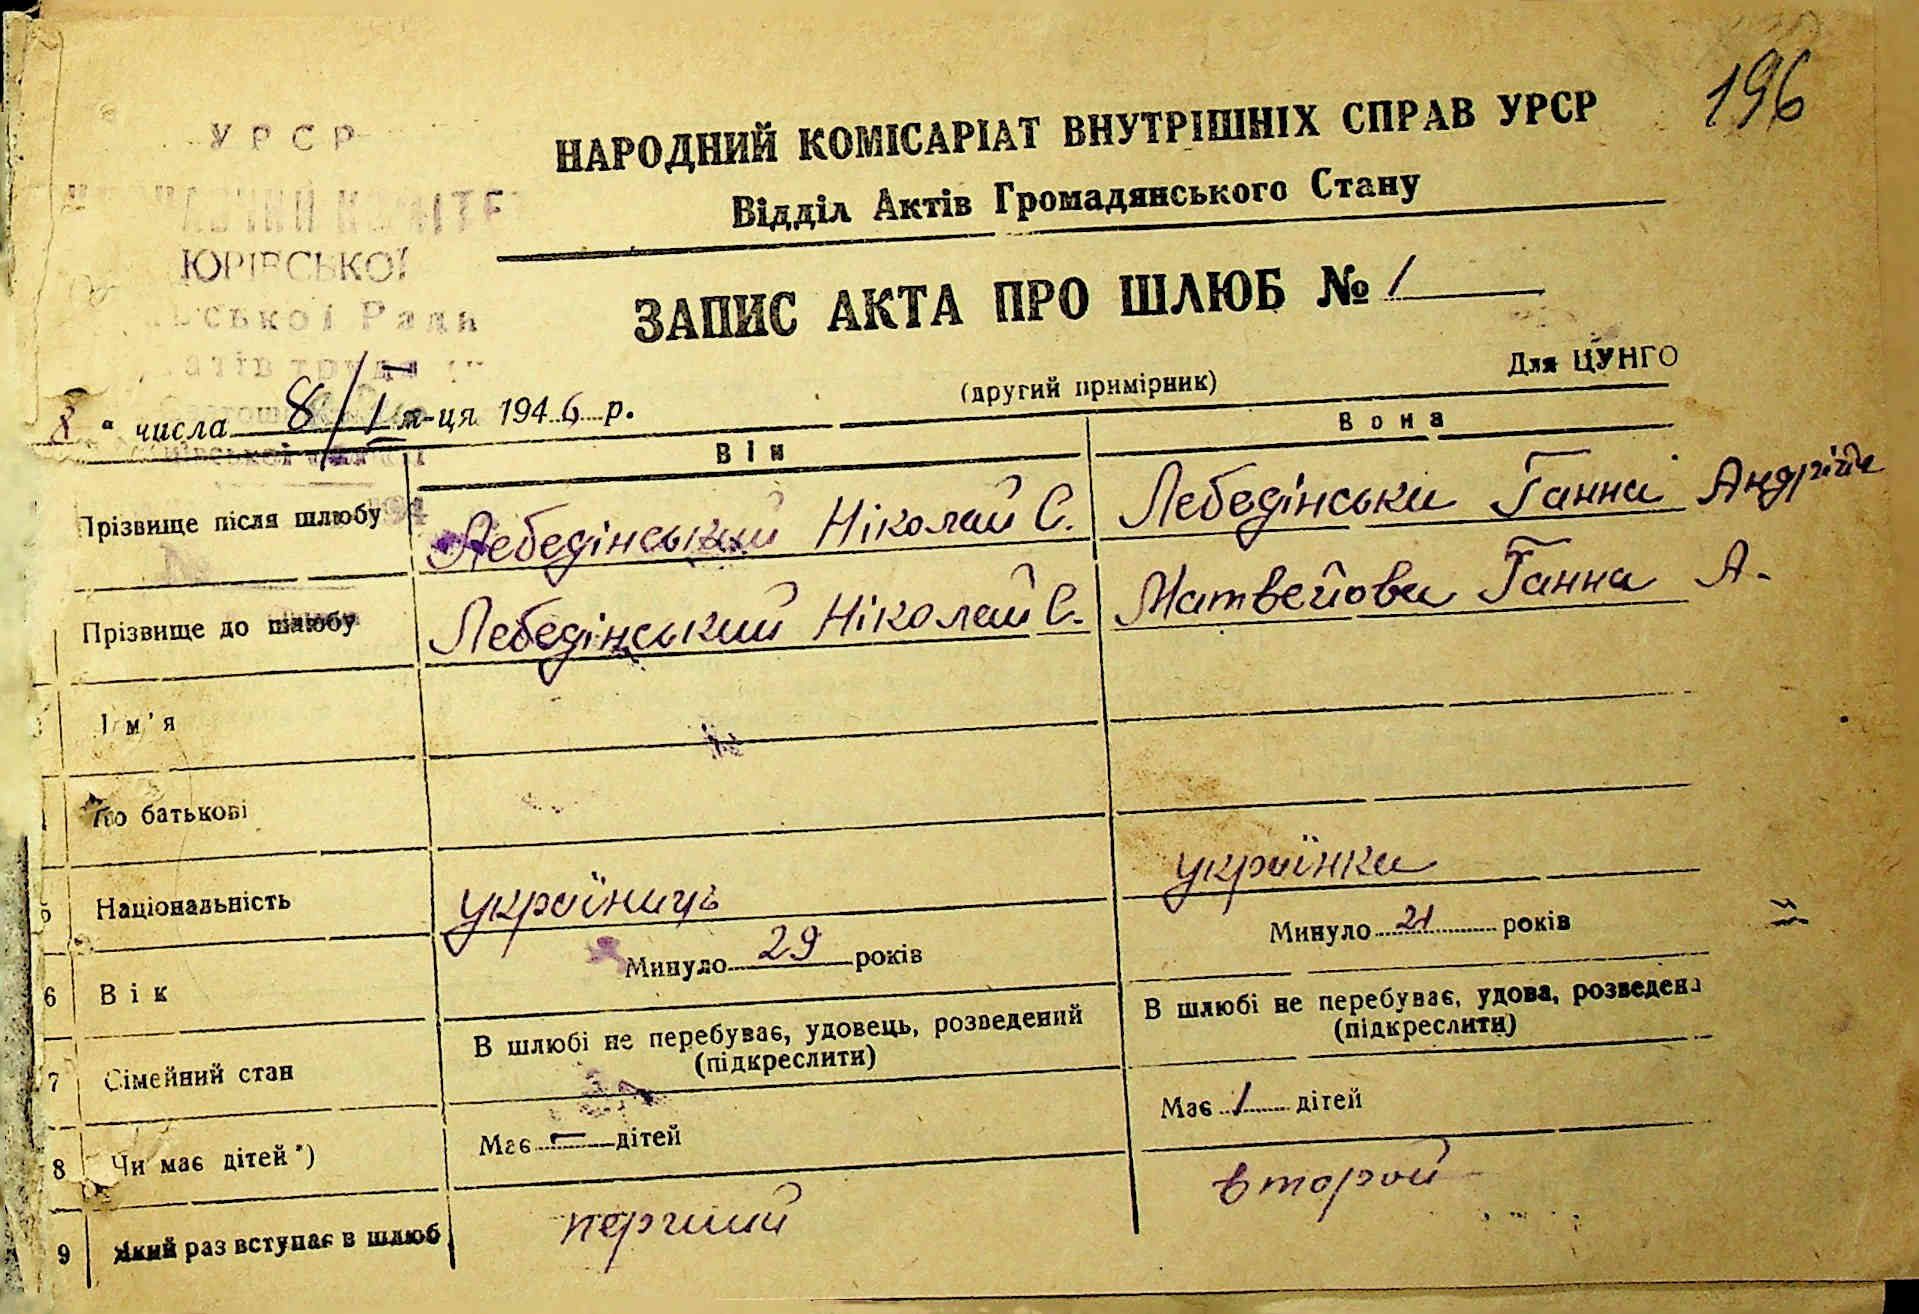 196
УРСР
НАРОДНИЙ КОМІСАРІАТ ВНУТРІШНІХ СПРАВ УРСР
Відділ Актів Громадянського Стану
ЮРІВСЬКОЇ
ЗАПИС АКТА ПРО ШЛЮБ № 1
Для ЦУНГО
(другий примірник)
8 " числа 8/I м-ця 1946 р.
Він Вона
Прізвище після шлюбу Лебедінський Ніколай С. Лебедінська Ганна Андріїв
Прізвище до шлюбу Лебедінський Ніколай С. Матвейова Ганна А.
Ім'я
По батькові
5 Національність україниць українка
6 Вік Минуло 29 років Минуло 21 років
7 Сімейний стан В шлюбі не перебуває, удовець, розведений (підкреслити) В шлюбі не перебуває, удова, розведена (підкреслити)
8 Чи має дітей *) Має — дітей Має 1 дітей
9 Який раз вступає в шлюб перший второй